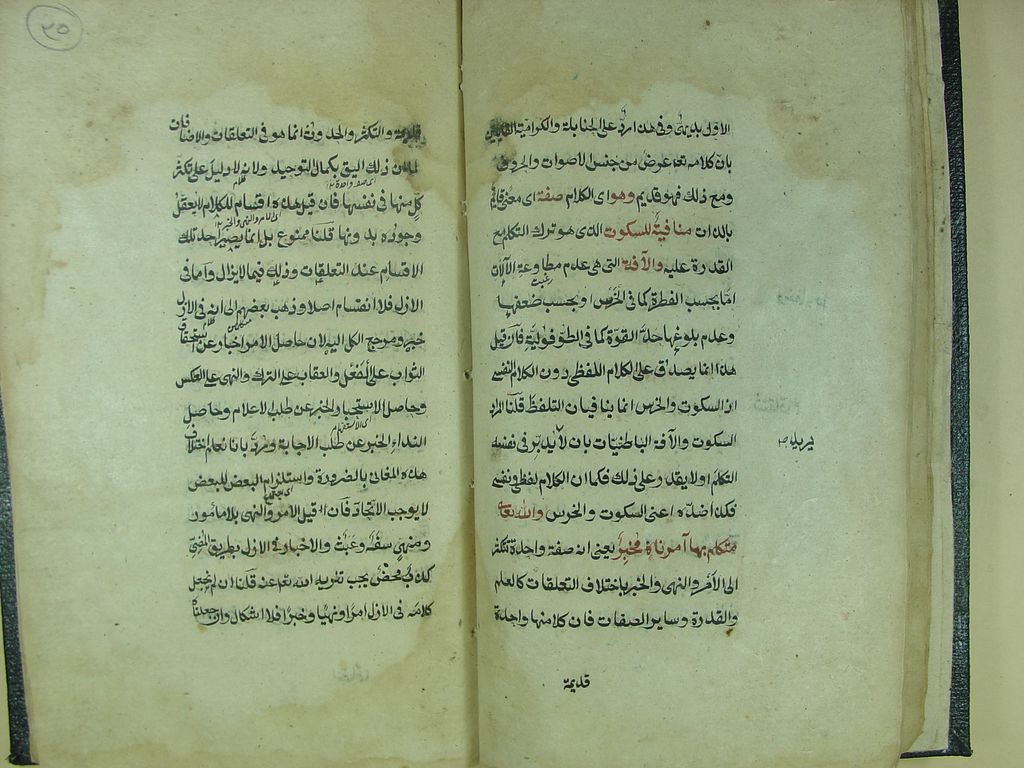 الاول بديهى وفى هذا رد على الحنابلة والكرامية القايلين
بان كلامه تعا عرض من جنس الاصوات والحروف
ومع ذلك فهو قديم وهو اى الكلام صفة اى معنى قائم
بالذات منافية للسكوت الذى هو ترك التكلم مع
القدرة عليه والآفة التى هى عدم مطاوعة الآلات
اما بحسب الفطرة كما فى الخرس او بحسب ضعفها
وعدم بلوغها حد القوة كما فى الطفولية فان قيل
هذا انما يصدق على الكلام اللفظى دون الكلام النفسى
اذ السكوت والخرس انما ينافيان التلفظ قلنا المراد
السكوت والآفة الباطنيات بان لا يدبر فى نفسه
التكلم او لا يقدر على ذلك فكما ان الكلام لفظى ونفسى
فكذا ضده اعنى السكوت والخرس والله تعا
متكلم بها آمر ناه مخبر يعنى انه صفة واحدة تتكثر
الى الامر والنهى والخبر باختلاف التعلقات كالعلم
والقدرة وساير الصفات فان كلا منها واحدة
قديمة
٢٥
قديمة والتكثر والحدوث انما هو فى التعلقات والاضافات
لما ان ذلك اليق بكمال التوحيد ولانه لا دليل على تكثر
كل منها فى نفسها فان قيل هذه اقسام للكلام لا يعقل
وجوده بدونها قلنا ممنوع بل انما يصير احد تلك
الاقسام عند التعلقات وذلك فيما لا يزال واما فى
الازل فلا انقسام اصلا وذهب بعضهم الى انه فى الازل
خبر ومرجع الكل اليه لان حاصل الامر اخبار عن استحقاق
الثواب على الفعل والعقاب على الترك والنهى على العكس
وحاصل الاستخبار الخبر عن طلب الاعلام وحاصل
النداء الخبر عن طلب الاجابة ورد بانا نعلم اختلاف
هذه المعانى بالضرورة واستلزام البعض للبعض
لا يوجب الاتحاد فان قيل الامر والنهى بلا مامور
ومنهى سفه وعبث والاخبار فى الازل بطريق المضى
كذب محض يجب تنزيه الله تعا عنه قلنا ان لم نجعل
كلامه فى الازل امرا ونهيا وخبرا فلا اشكال وان جعلناه